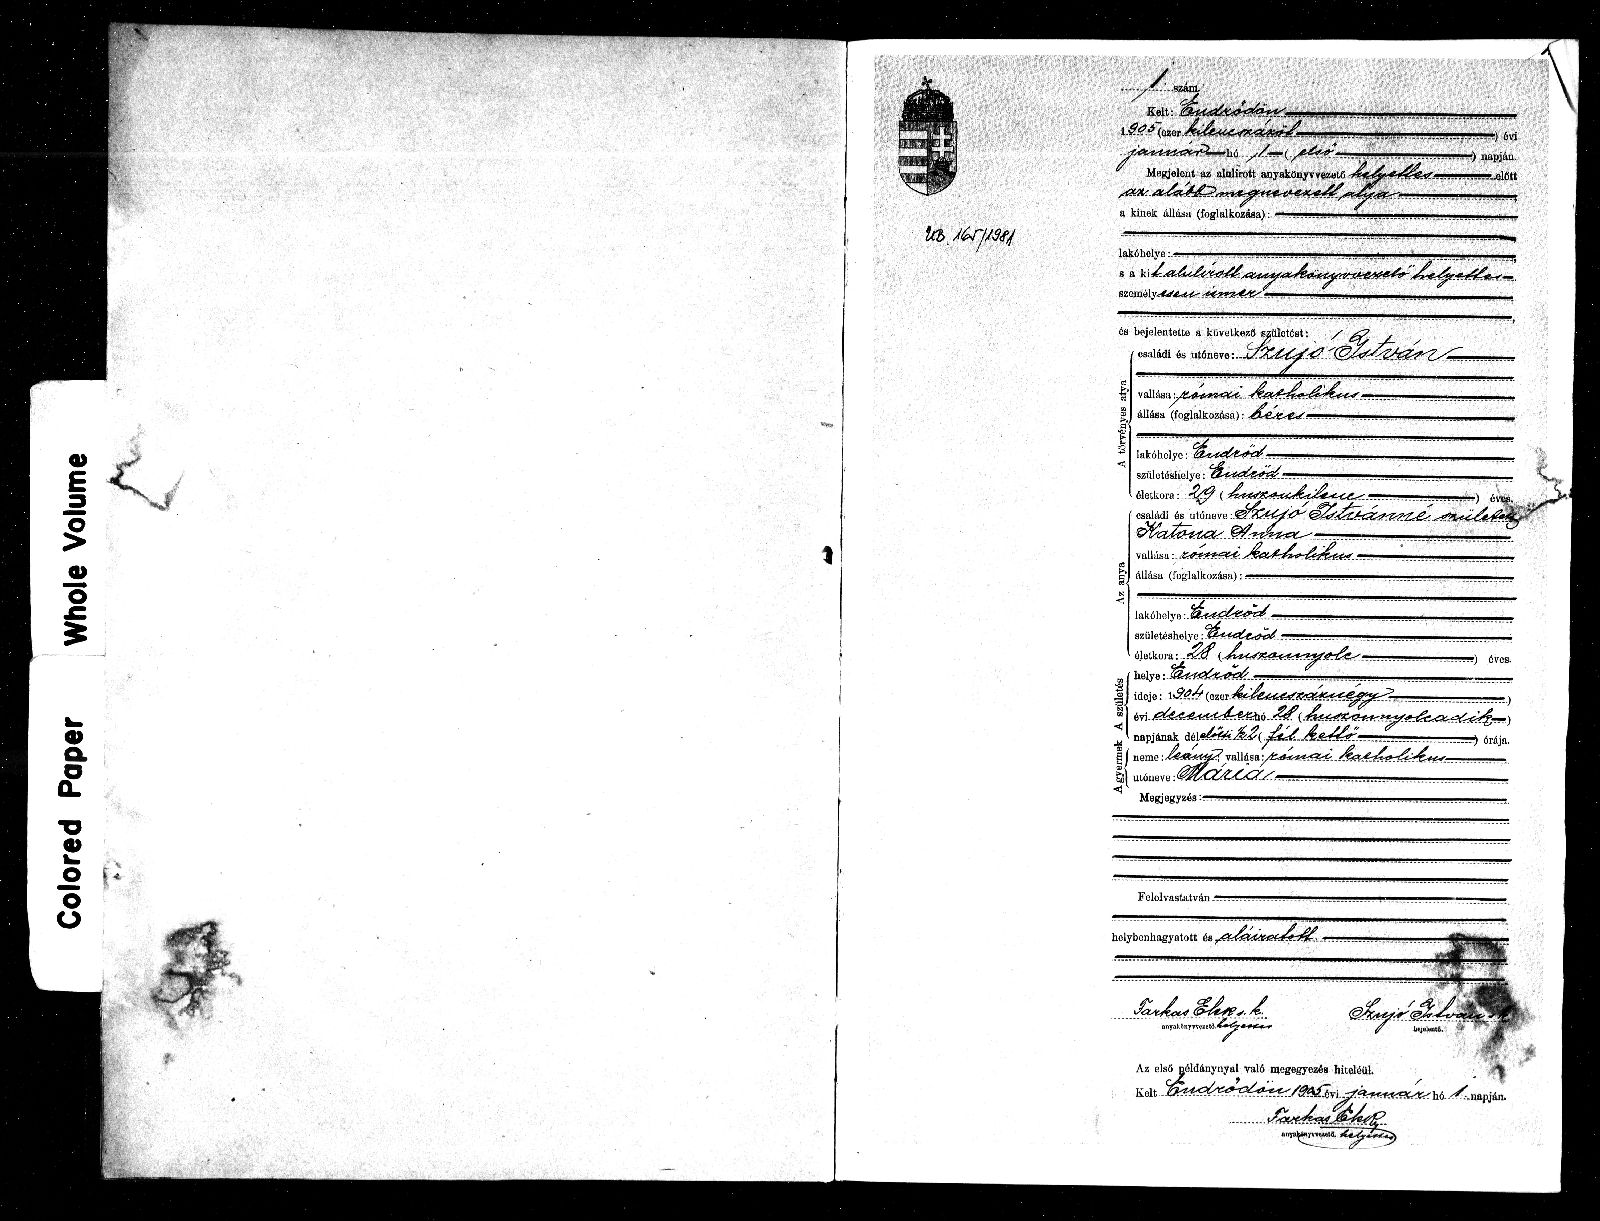 Whole Volume
Colored Paper
UB. 165/1981
1 szám
Kelt: Endrődön
1905 (ezer kilencszázöt ) évi
január hó 1 ( első ) napján.
Megjelent az alulírott anyakönyvvezető helyettes előtt
az alább megnevezett atya
a kinek állása (foglalkozása):
lakóhelye:
s a kit alulírott anyakönyvvezető helyettes
személyesen ismer
és bejelentette a következő születést:
A törvényes atya
családi és utóneve: Szujó István
vallása: római katholikus
állása (foglalkozása): béres
lakóhelye: Endrőd
születéshelye: Endrőd
életkora: 29 ( huszonkilenc ) éves.
Az anya
családi és utóneve: Szujó Istvánné született
Katona Anna
vallása: római katholikus
állása (foglalkozása):
lakóhelye: Endrőd
születéshelye: Endrőd
életkora: 28 ( huszonnyolc ) éves.
A születés
helye: Endrőd
ideje: 1904 (ezer kilencszáznégy )
évi december hó 28 ( huszonnyolcadik )
napjának délelőtti ½2 ( fél kettő ) órája.
A gyermek
neme: leány vallása: római katholikus
utóneve: Mária
Megjegyzés:
Felolvastatván
helybenhagyatott és aláiratott
Farkas Elek s. k. Szujó István s. k.
anyakönyvvezető helyettes bejelentő.
Az első példánynyal való megegyezés hiteléül.
Kelt Endrődön 1905 évi január hó 1 napján.
Farkas Elek
anyakönyvvezető. helyettes